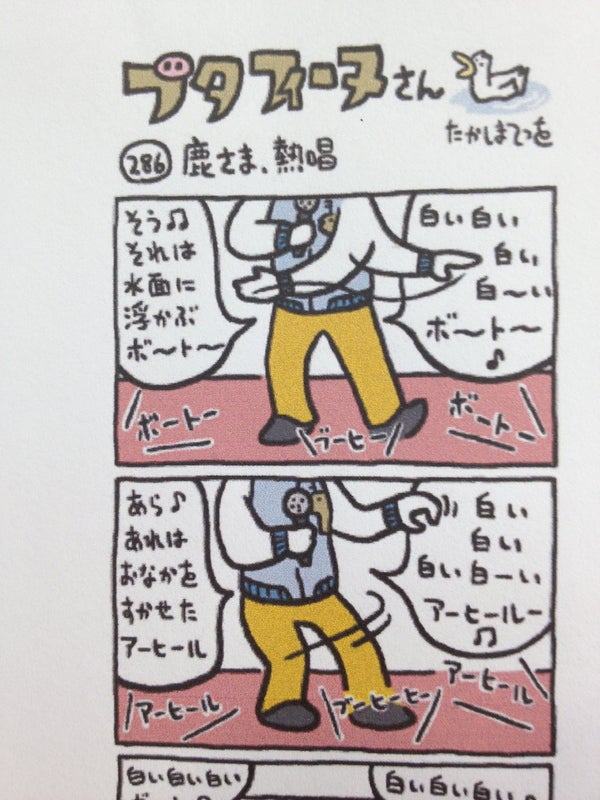 ブタフィーヌさん
たかしまてつを
286 鹿さま、熱唱
白い白い
白い
白〜い
ボ〜ト〜♪
そう♫
それは
水面に
浮かぶ
ボ〜ト〜
ボートー
ブーヒー
ボートー
白い
白い
白い白ーい
アーヒールー
♫
あら♪
あれは
おなかを
すかせた
アーヒール
アーヒール
ブーヒーヒー
アーヒール
白い白い♪
白い白い白い